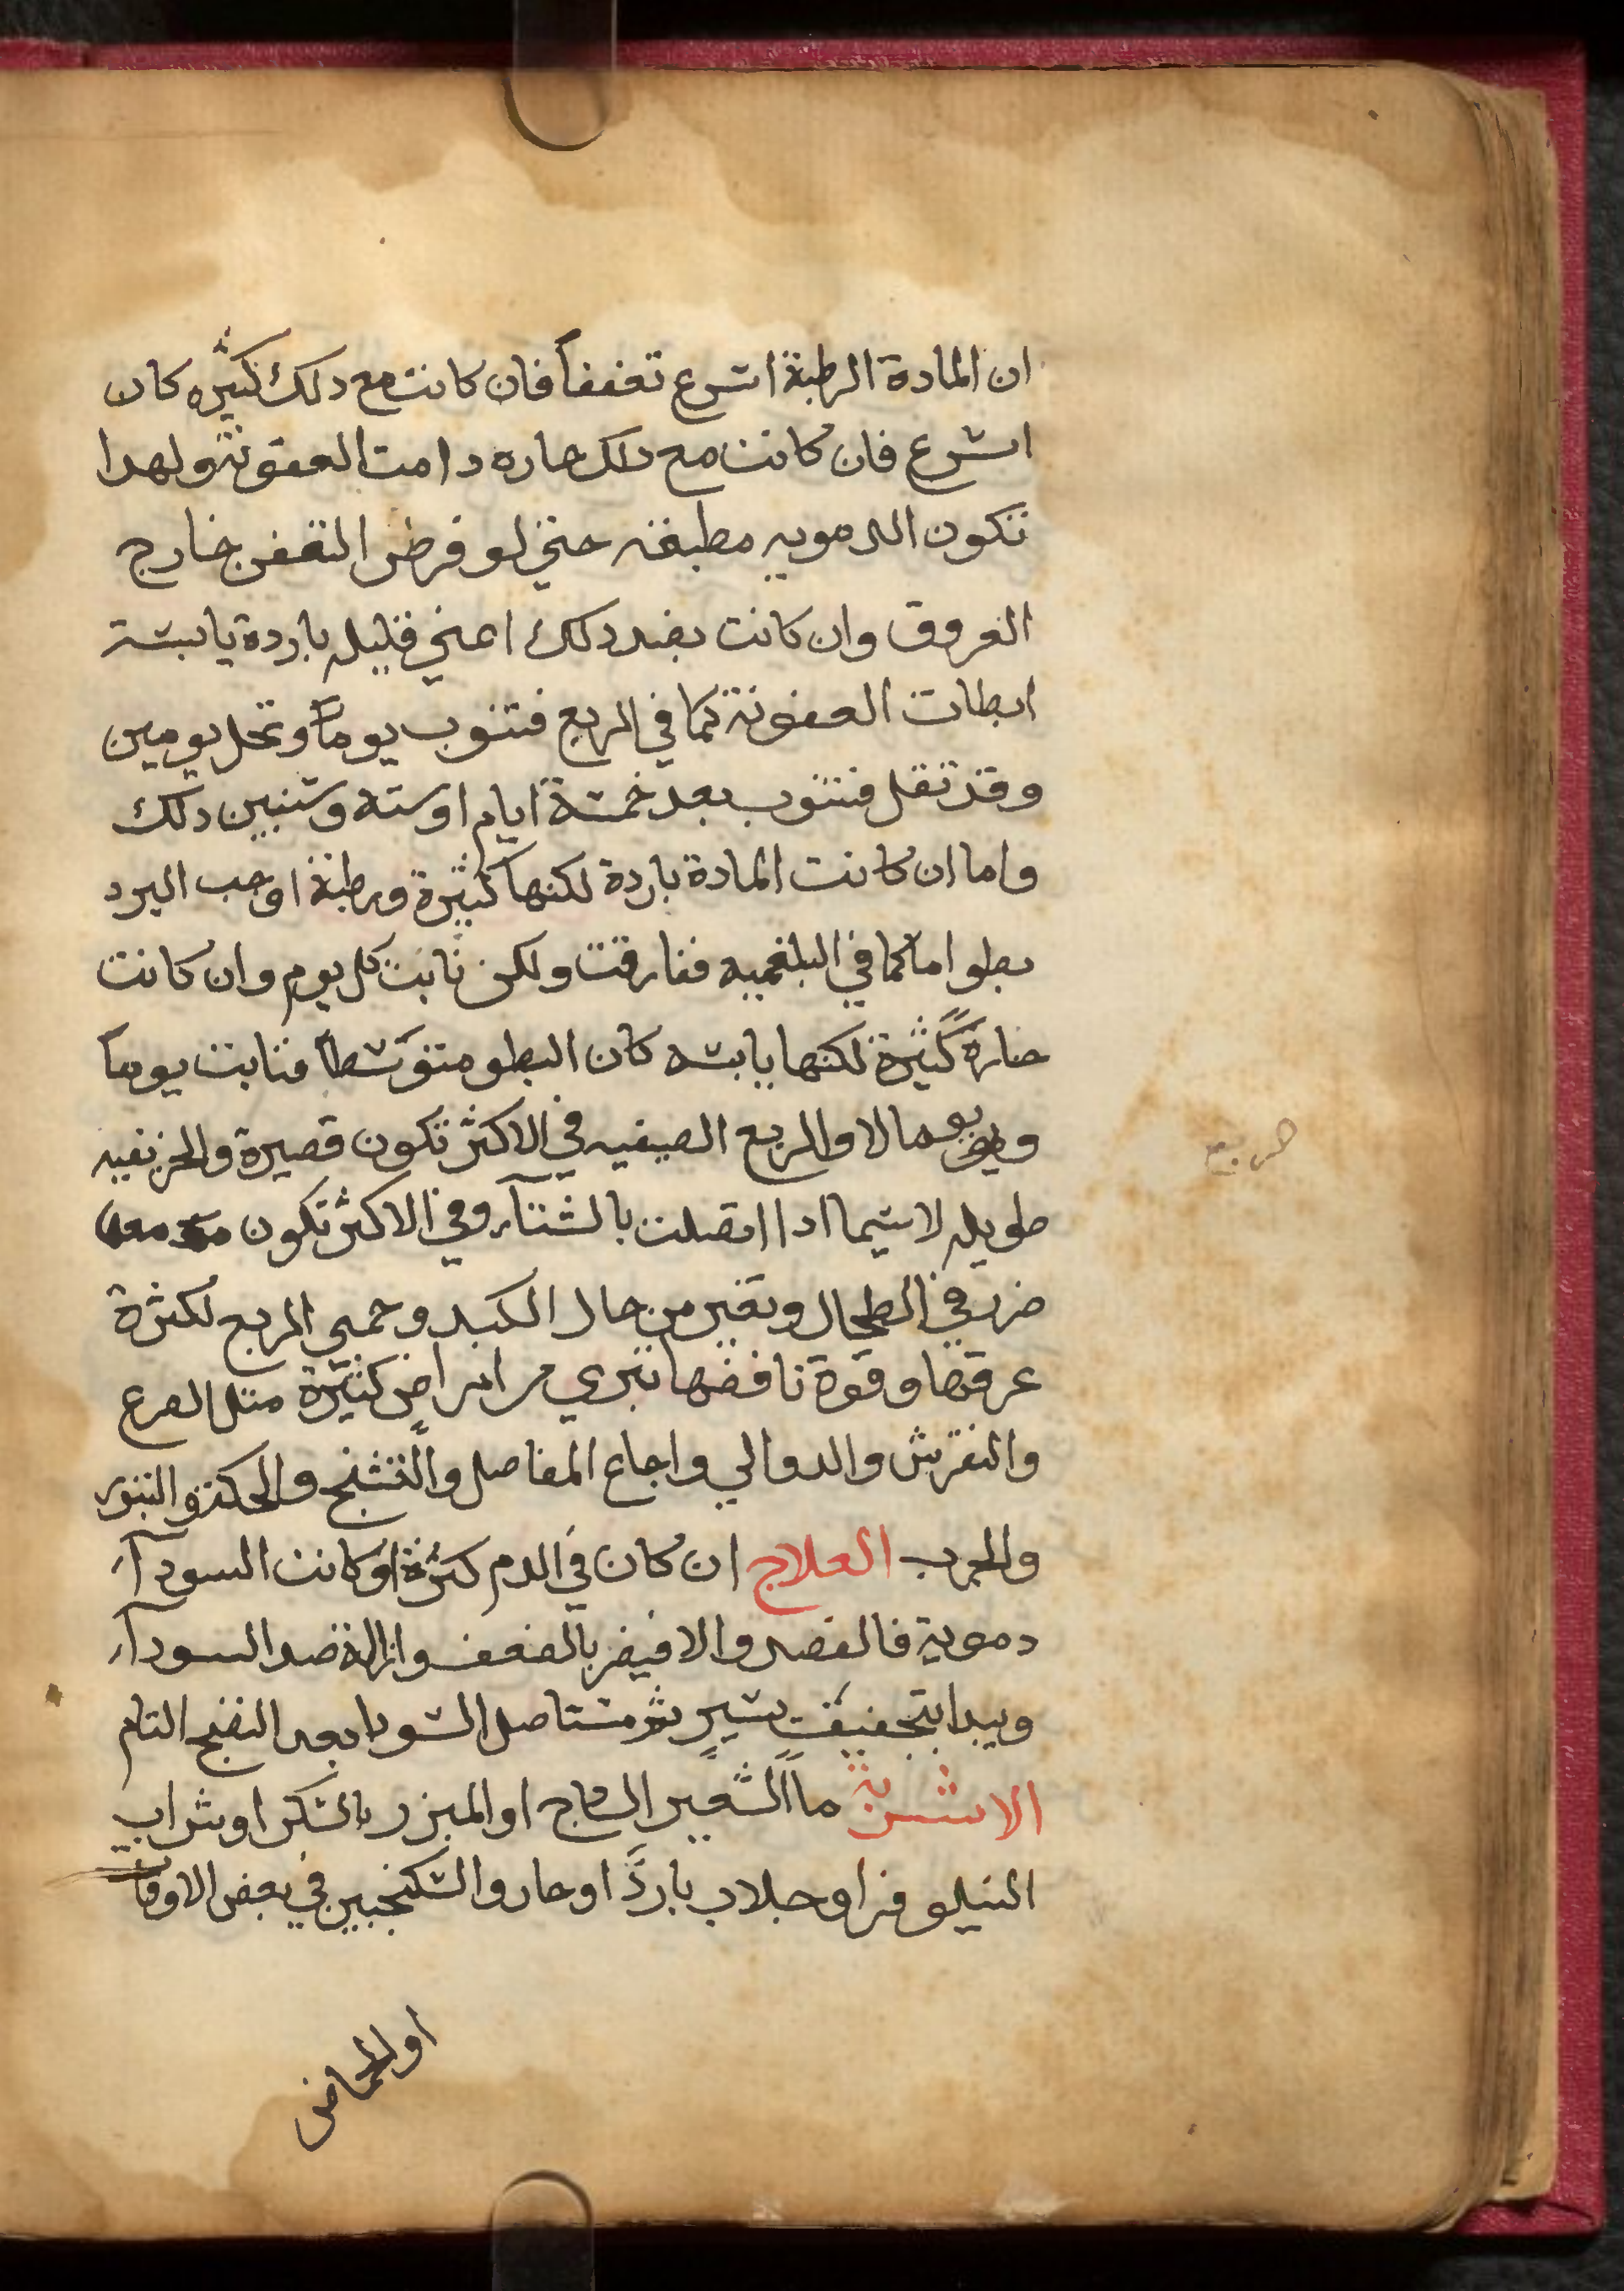 ان المادة الرطبة اسرع تعفنا فان كانت مع دلك كثيره كان
اسرع فان كانت مع دلك حاره دامت العفونة ولهدا
تكون الدمويه مطبقه حتي لو فرض التعفن خارج
العروق وان كانت بضد دلك اعني قليله باردة يابسة
ابطات العفونة كما في الربع فتنوب يوماً وتخل يومين
وقد تقل فتنوب بعد خمسة ايام او سته وسنبين دلك
واما ان كانت المادة باردة لكنها كثيرة ورطبة اوجب البرد
بطوا ما كما في البلغميه ففارقت ولكن نابت كل يوم وان كانت
حارة كثيرة لكنها يابسه كان البطو متوسطاً فنابت يوماً
ويوما لا والربع الصيفيه في الاكثر تكون قصيرة والخريفيه
طويله لاسيما ادا اتصلت بالشتآء وفي الاكثر تكون معها
ضرر في الطحال وتغير من حال الكبد وحمي الربع لكثرة
عرقها وقوة نافضها تبري من امراض كثيرة مثل الصرع
والنقرس والدوالي واجاع المفاصل والتشنج والحكة والبثور
والجرب العلاج ان كان في الدم كثرة او كانت السودآء
دموية فالفصد والا فيضر بالضعف وازالة ضد السودآء
ويبدا بتجفيف يسير ثم تستاصل السودا بعد النضج التام
الاشربة مآ الشعير السادج او المبزر بالسكر او شراب
النيلوفر او جلاب بارد او حار والسكنجبين في بعض الاوقات
او الحماض
حمى ربع